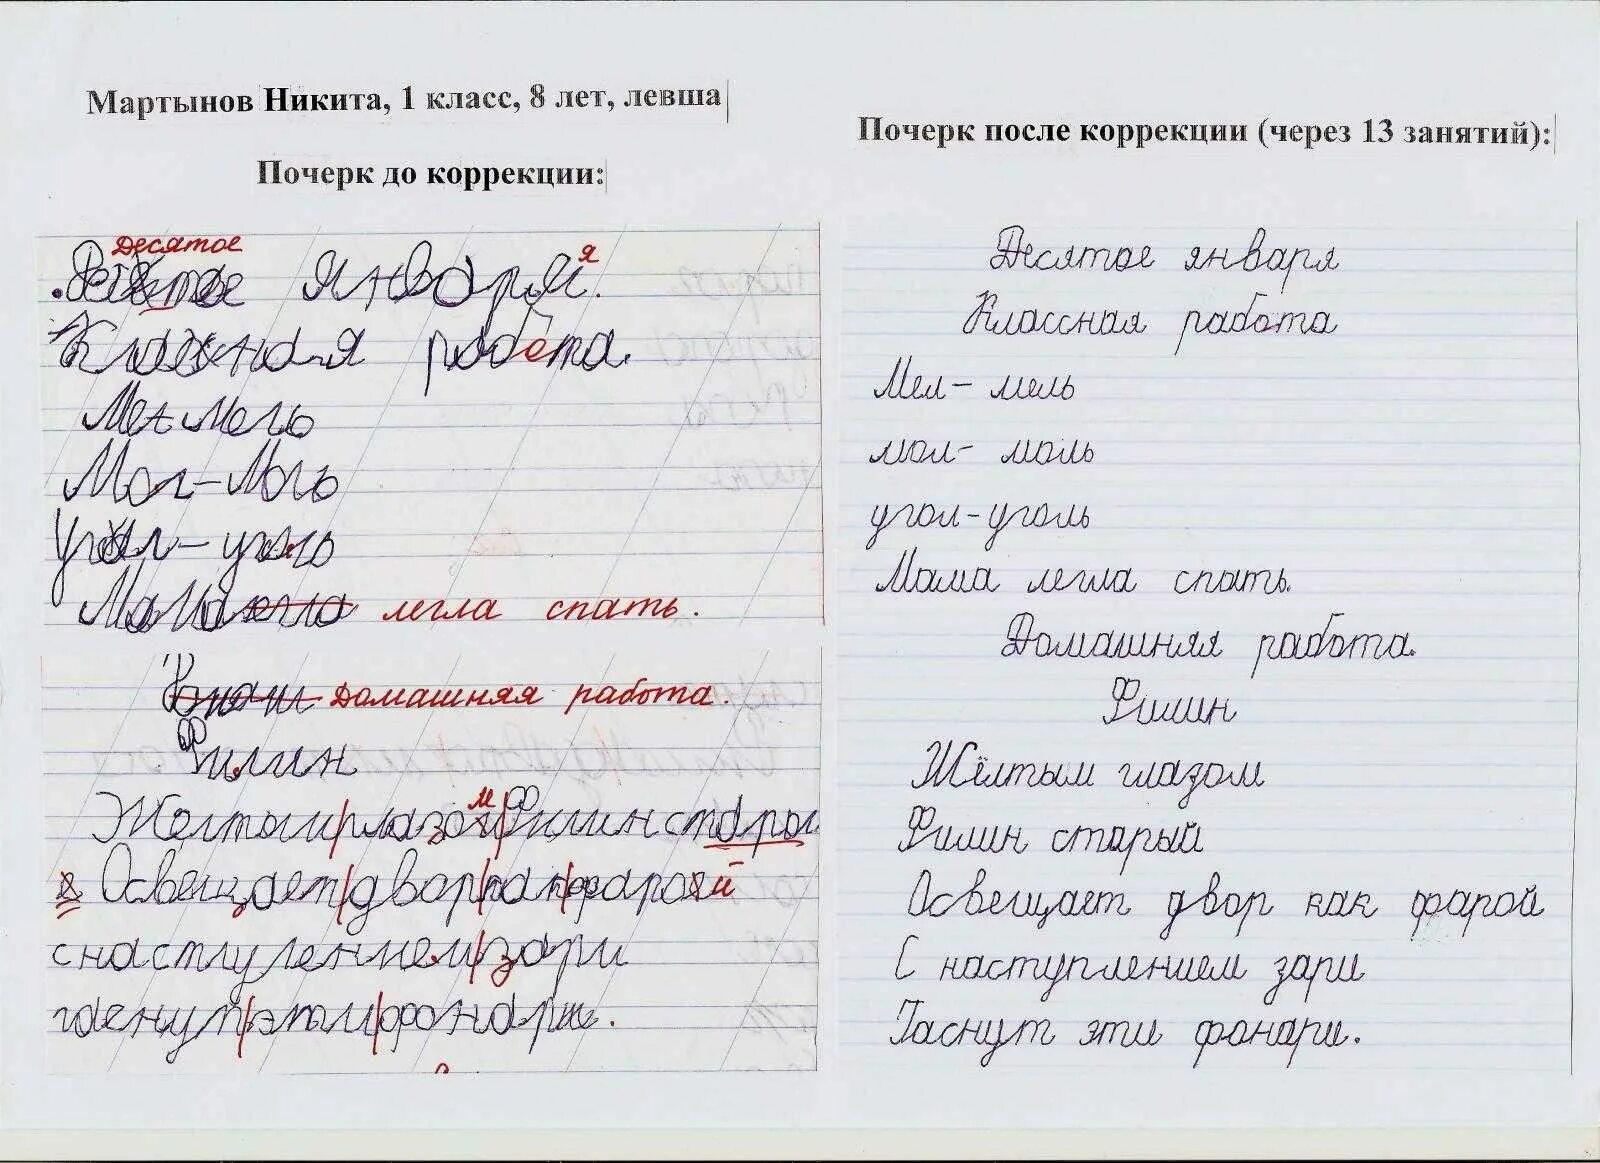 Мартынов Никита, 1 класс, 8 лет, левша
Почерк до коррекции:
Десятое
января.
я
Классная работа.
Мел-Мель
Мол-Моль
Угол-уголь
Мама легла спать.
Домашняя работа.
Филин
Желтым глазом Филин стары
м
й Освещает двор как фарой
с наступлением зари
гаснут эти фонари.
Почерк после коррекции (через 13 занятий):
Десятое января
Классная работа
Мел- мель
мол- моль
угол-уголь
Мама легла спать.
Домашняя работа.
Филин
Жёлтым глазом
Филин старый
Освещает двор как фарой
С наступлением зари
Гаснут эти фонари.